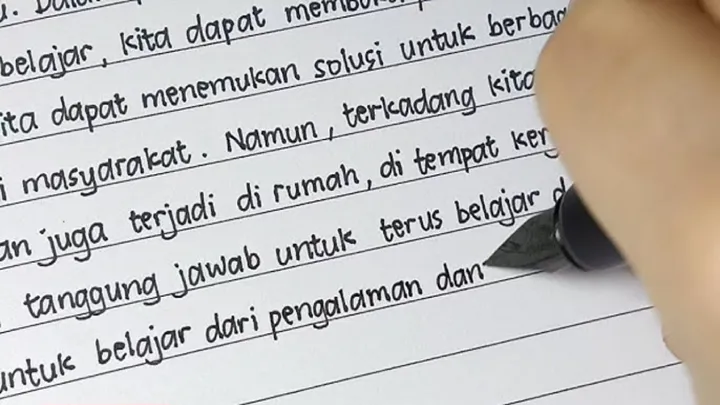 belajar, kita dapat
ita dapat menemukan solusi untuk
masyarakat. Namun, terkadang kita
an juga terjadi di rumah, di tempat ker
tanggung jawab untuk terus belajar d
untuk belajar dari pengalaman dan